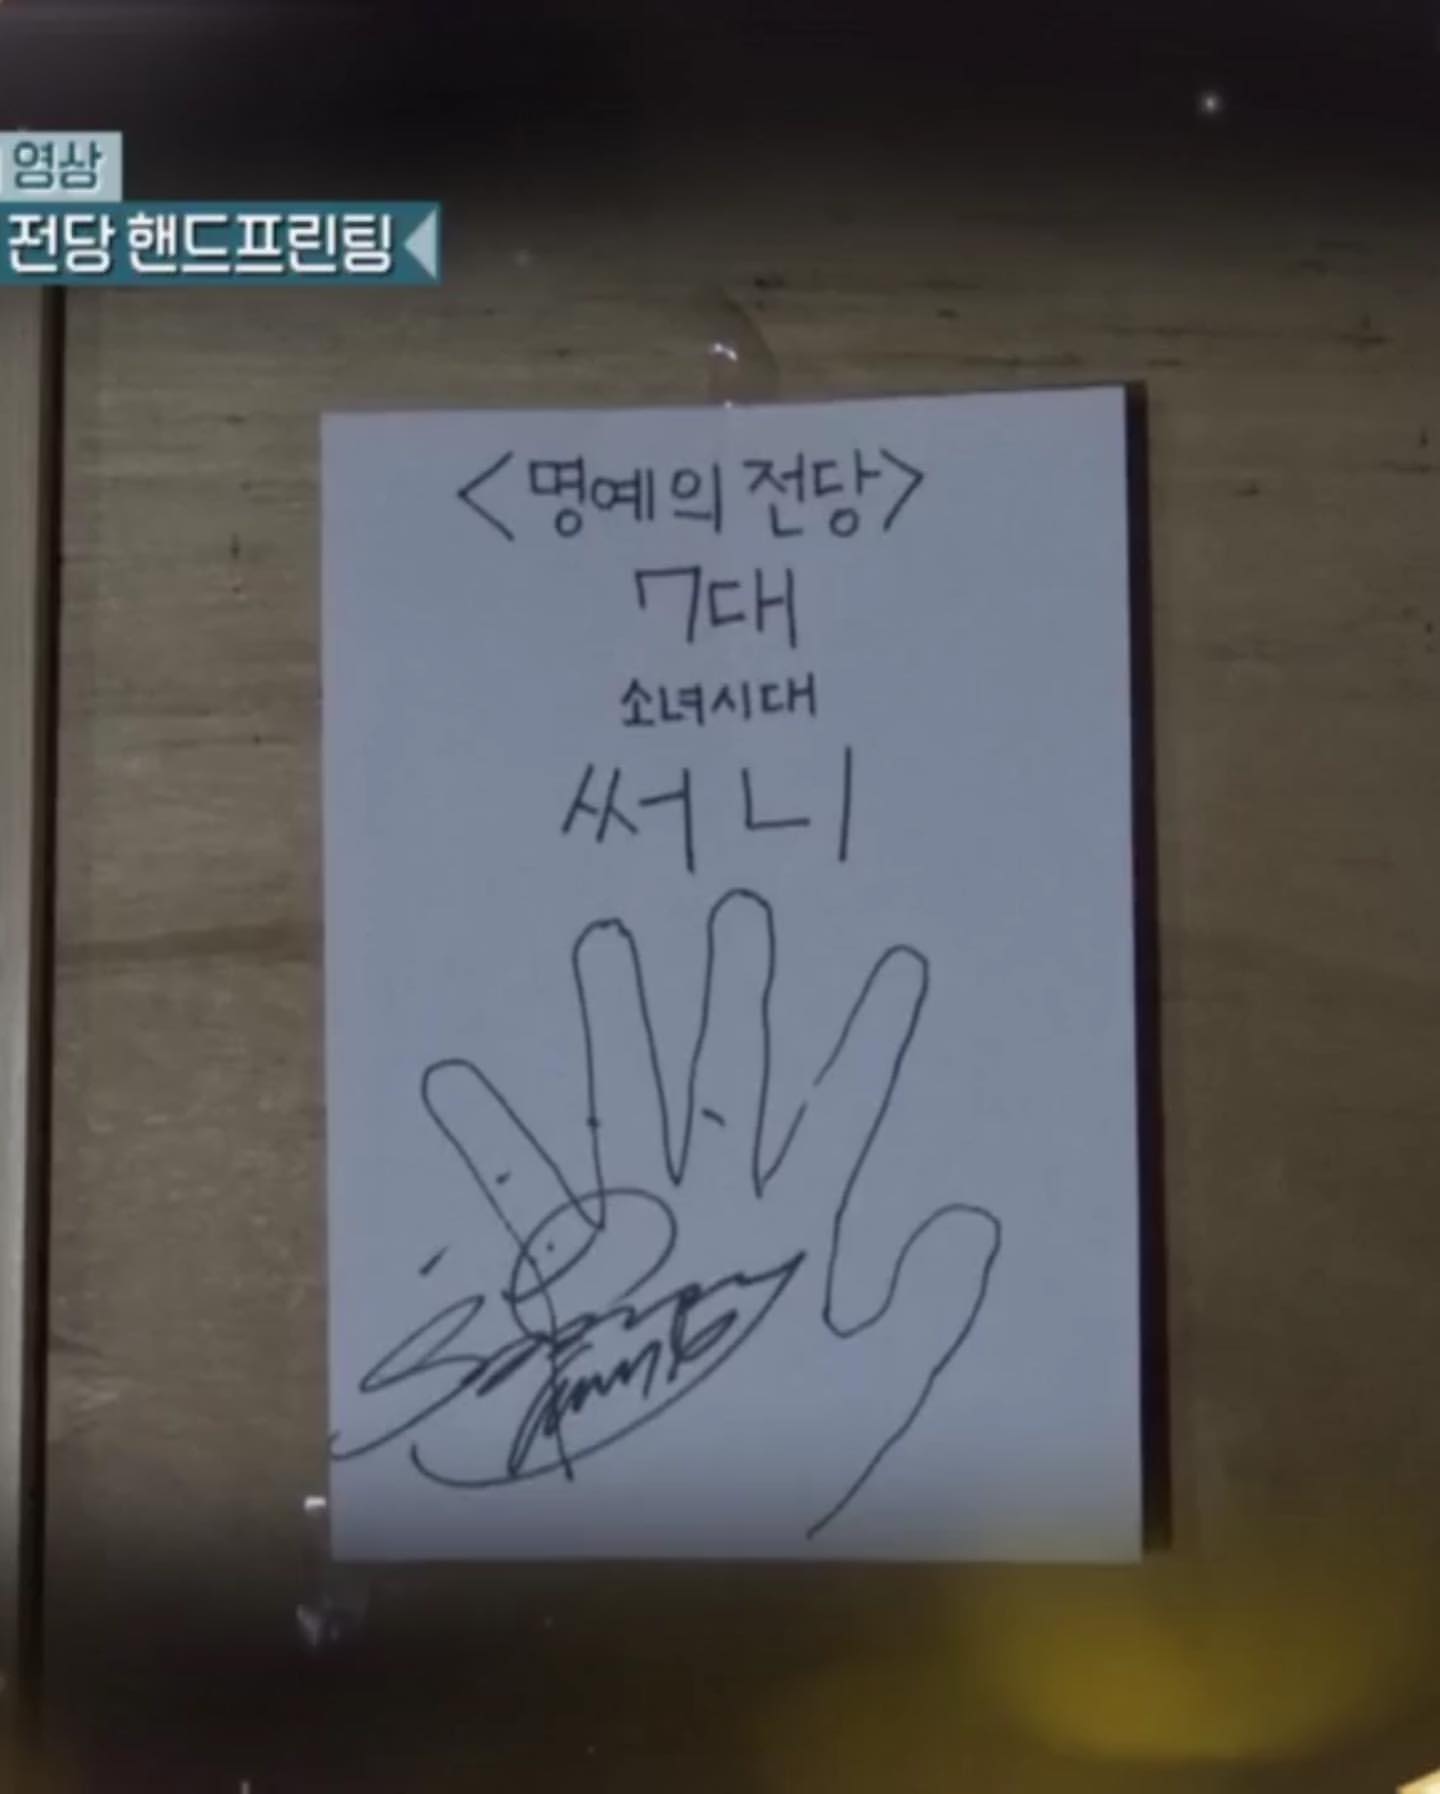 영상
전당 핸드프린팅
<명예의 전당>
7대
소녀시대
써니